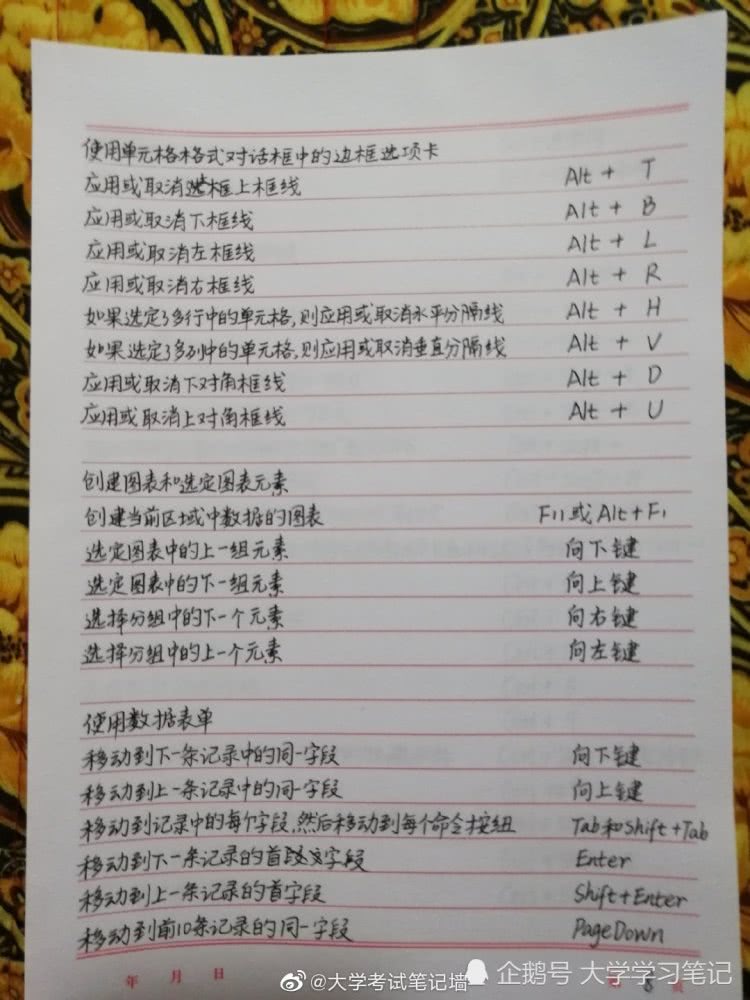 使用单元格格式对话框中的边框选项卡
应用或取消选框上框线 Alt + T
应用或取消下框线 Alt + B
应用或取消左框线 Alt + L
应用或取消右框线 Alt + R
如果选定了多行中的单元格,则应用或取消水平分隔线 Alt + H
如果选定了多列中的单元格,则应用或取消垂直分隔线 Alt + V
应用或取消下对角框线 Alt + D
应用或取消上对角框线 Alt + U
创建图表和选定图表元素
创建当前区域中数据的图表 F11或Alt+F1
选定图表中的上一组元素 向下键
选定图表中的下一组元素 向上键
选择分组中的下一个元素 向右键
选择分组中的上一个元素 向左键
使用数据表单
移动到下一条记录中的同一字段 向下键
移动到上一条记录中的同一字段 向上键
移动到记录中的每个字段,然后移动到每个命令按钮 Tab和Shift+Tab
移动到下一条记录的首字段 Enter
移动到上一条记录的首字段 Shift+Enter
移动到前10条记录的同一字段 PageDown
年 月 日
@大学考试笔记墙
企鹅号 大学学习笔记